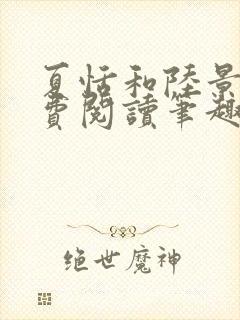 夏恬和陸景
費閱讀筆趣
绝世魔神